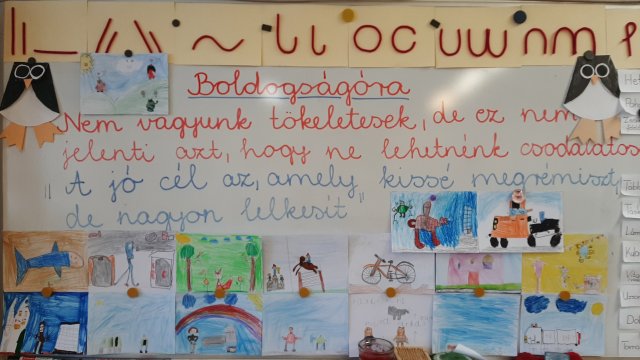 Boldogságóra
Nem vagyunk tökéletesek, de ez nem
jelenti azt, hogy ne lehetnénk csodálatos
"A jó cél az, amely kissé megrémiszt,
de nagyon lelkesít"